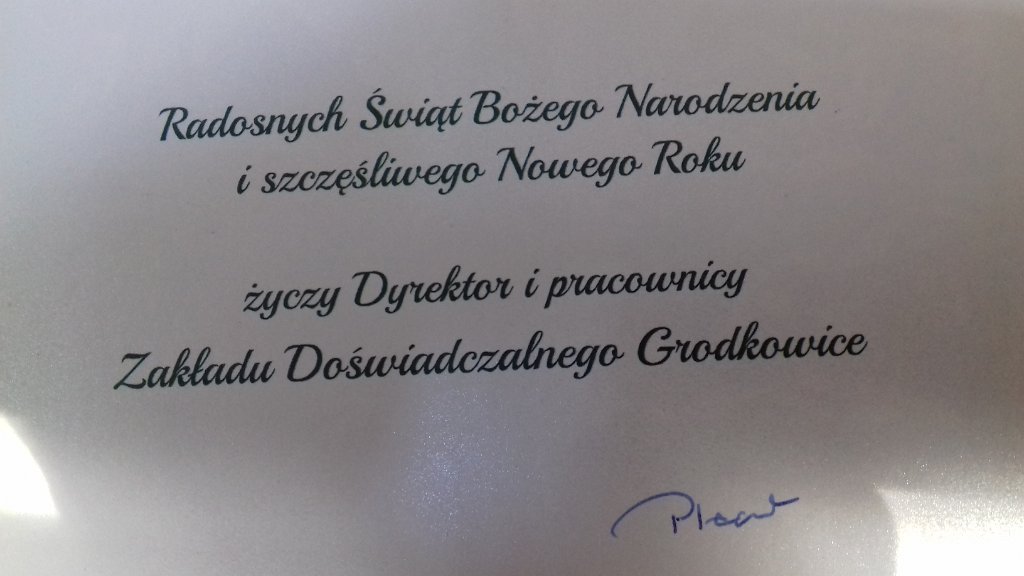 Radosnych Świąt Bożego Narodzenia
i szczęśliwego Nowego Roku
życzy Dyrektor i pracownicy
Zakładu Doświadczalnego Grodkowice